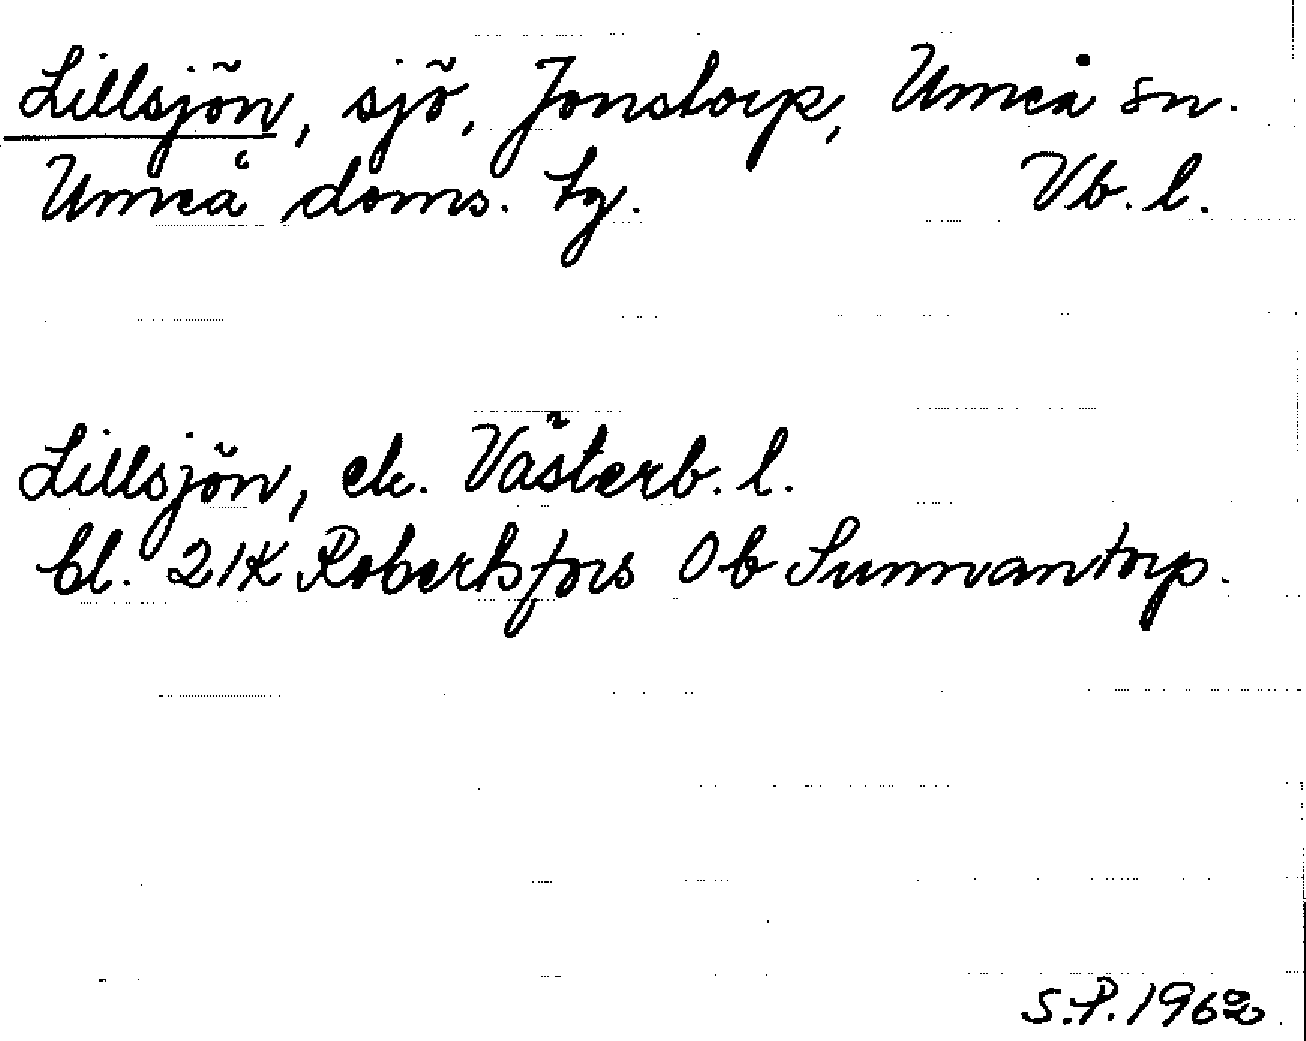 Lillsjön, sjö, Jonstorp, Umeå sn.
Umeå doms. tg. Vb. l.
Lillsjön, ek. Västerb. l.
bl. 21K Robertsfors 0b Sunnantorp.
S.P. 1962